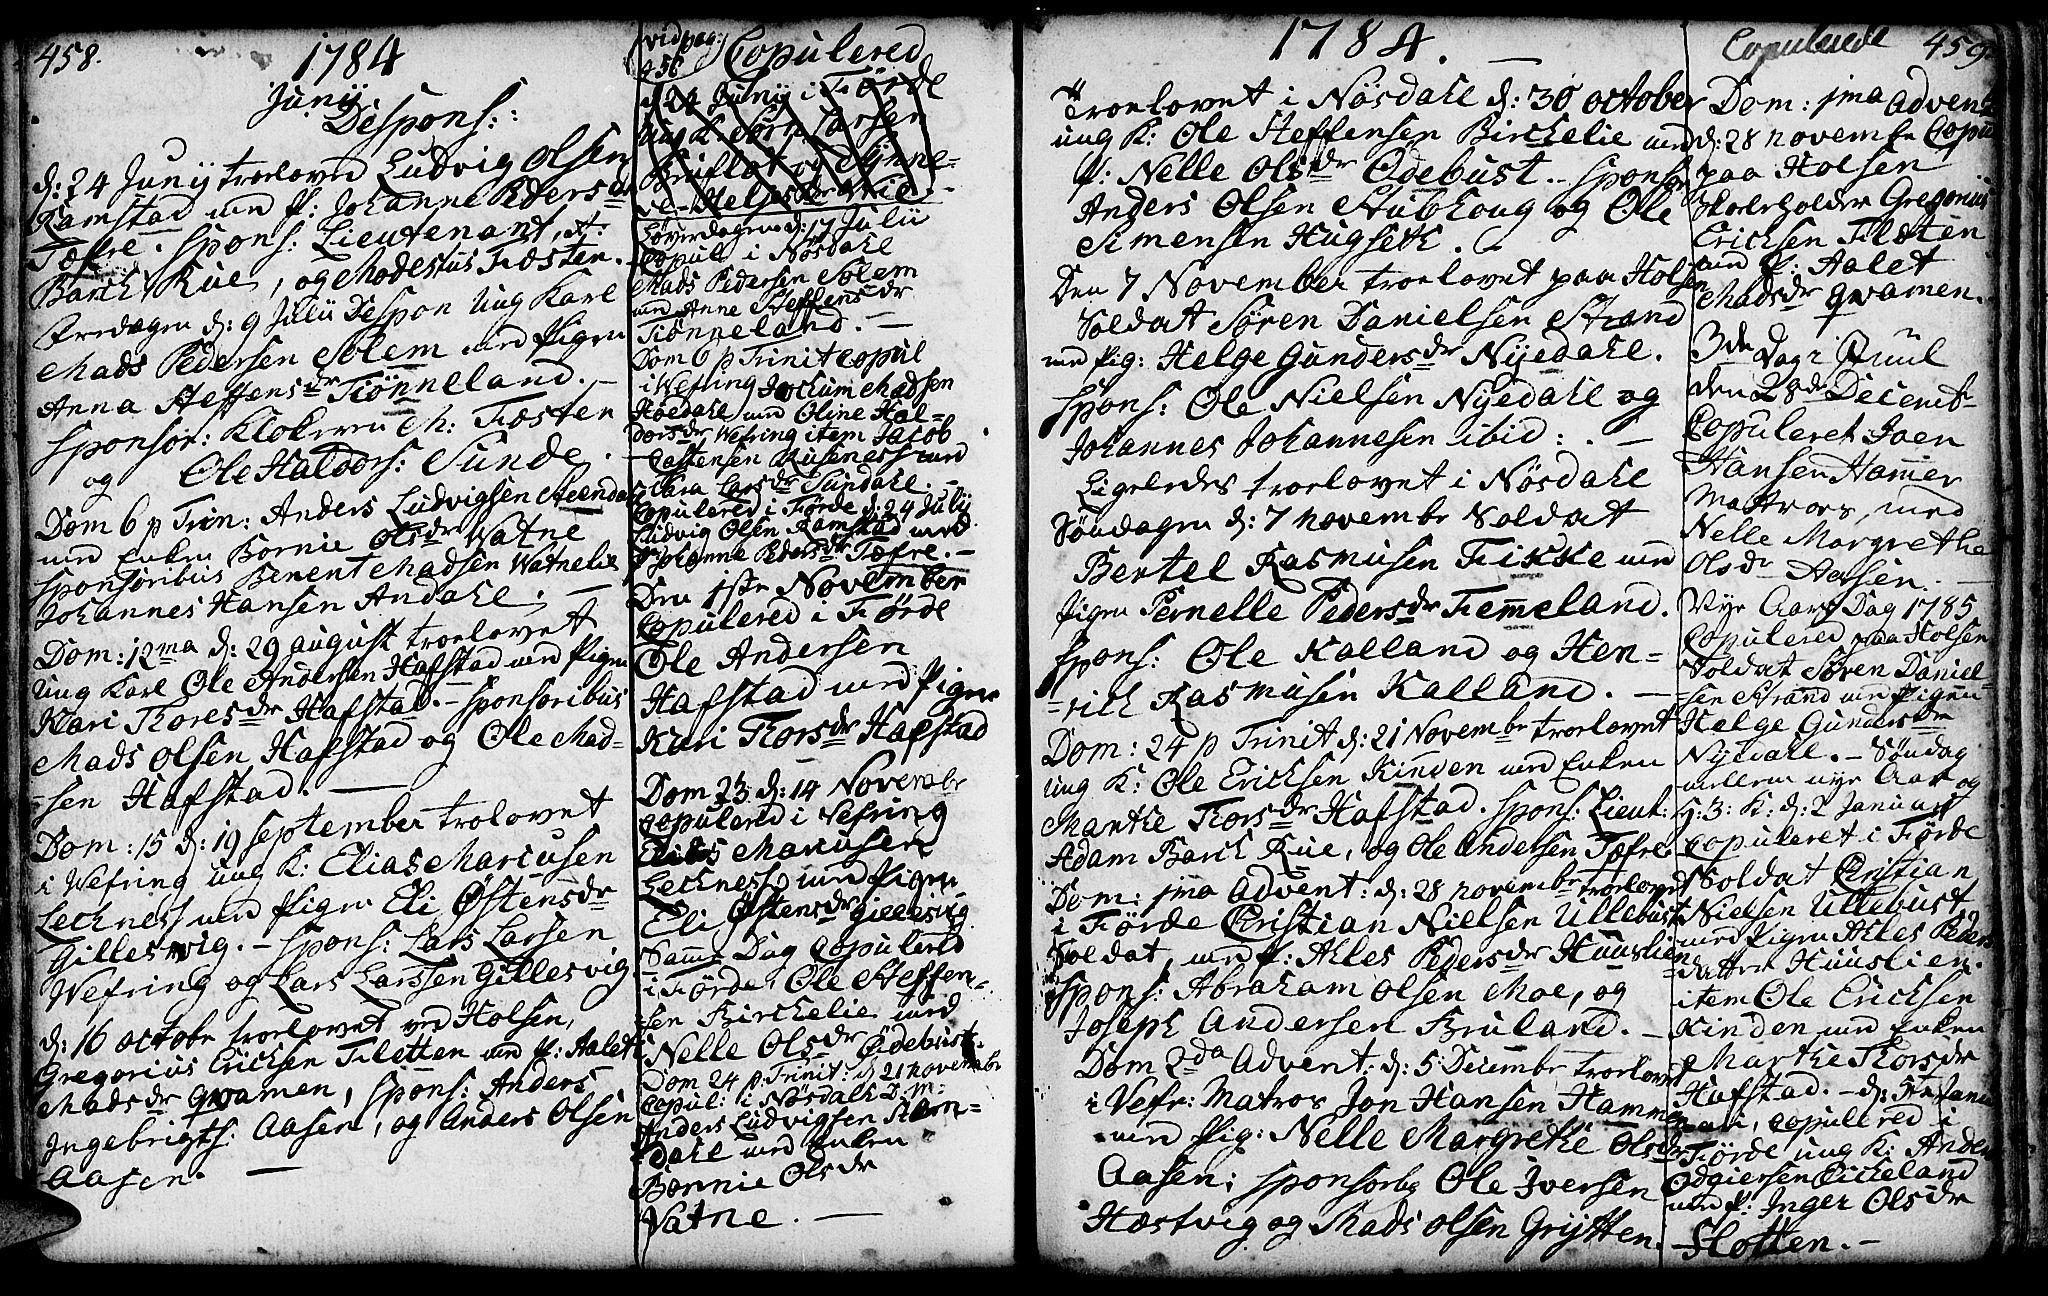 458.
1784
Junij
Despons:
d: 24 Junij troelovet Ludvig Olsen
Ramstad med P: Johanne Pedersdr
Tæfre. Spons: Lieutenant A:
Barch Rue, og Modestus Fæsten.
Fredagen d: 9 Julii Despon Ung Karl
Mads Pedersen Solem med Pigen
Anna Steffensdr Tiønneland.
Sponsor: Klokkeren M: Fæsten
og Ole Haldors: Sunde.
Dom 6 p Trin: Anders Ludvigsen Steendal
med Enken Bornie Olsdr Watne
Sponsoribus Benent Madsen Watnelie
Johannes Hansen Andahl.
Dom: 12ma d: 29 august troelovet
Ung Karl Ole Andersen Hafstad med Pigen
Kari Thoresdr Hafstad. - Sponsoribus
Mads Olsen Hafstad og Ole Mad=
=sen Hafstad.
Dom: 15 d: 19 September trolovet
i Wefring ung K: Elias Marcusen
Lechness med Pigen Eli Østensdr
Gillesvig. - Spons: Lars Larsen
Wefring og Lars Larssen Gillesvig
d: 16 octobr troelovet ved Holsen,
Gregorius Ericksen Fletten med P: Aalet
Madsdr Qvamen, Spons: Anders
Ingebrigts: Aasen, og Anders Olsen
Aasen.
vid pag:
456
Copulered
d 24 Junij i Førde
Ung K: Sørn Larsen
Bruflot og Synne=
ve Helgesdr
Løverdagen d: 17 Julii
Copul i Nøsdahl
Mads Pedersen Solem
med Anne Steffensdr
Tiønneland.
Dom 6 p Trinit copul
i Wefring Jochum Madsen
Høedahl med Oline Hal=
dorsdr Wefring item Jacob
Castensen Kusenæss med
Clara Larsdr Sundahl.
Copulered i Førde d: 24 Julij
Ludvig Olsen Ramstad med
P Johanne Pedersdr Tæfre.
Den 1ste November
Copulered i Førde
Ole Andersen
Hafstad med Pigen
Kari Thorsdr Hafstad
Dom 23 d: 14 Novembr
copulered i Wefring
Elias Marcusen
Lechness med Pigen
Eli Østensdr Gillesvig
Samme Dag copulered
i Førde Ole Steffen=
=sen Birchelie med
Nelle Olsdr Ødebust.
Dom 24 p: Trinit: d: 21 novembr
Copul: i Nøsdahl
Anders Ludvigsen Steen=
dahl med Enken
Bornie Olsdr
Watne.
1784.
Troelovet i Nøsdahl d: 30 october
ung K: Ole Steffensen Birchelie med
P: Nelle Olsdr Ødebust. - Sponsor
Anders Olsen Stubhoug og Ole
Simensen Hugseth.
Den 7 November troelovet paa Holsen
Soldat Søren Danielsen Strand
med Pig: Helge Gundersdr Nyedahl.
Spons: Ole Nielsen Nyedahl og
Johannes Johannesen ibid:
Ligeledes troelovet i Nøsdahl
Søndagen d: 7 novembr Soldat
Bertel Rasmusen Fikke med
Pigen Pernelle Pedersdr Femmeland.
Spons: Ole Kalland og Hen=
=rich Rasmusen Kalland.
Dom: 24 p Trinit d: 21 Novembr troelovet
ung K: Ole Ericksen Kinden med Enken
Marthe Thorsdr Hafstad. Spons: Lieut:
Adam Barch Rue, og Ole Andersen Tæfre.
Dom: 1ma Advent: d: 28 novembr troelovet
i Førde Christian Nielsen Ullebust
Soldat, med P: Ahles Pedersdr Huuslien
Spons: Abraham Olsen Moe, og
Joseph Andersen Bruland.
Dom 2da Advent: d: 5 Decembr troelovet
i Vefr: Matros Jon Hansen Hammer
med Pig: Nelle Margrethe Olsdr
Aasen; Sponsorb Ole Iversen
Hæstvig og Mads Olsen Grytten.
Copulerede 459.
Dom: 1ma Advent
d: 28 novembr Copul
paa Holsen
Skoleholder Gregorius
Ericksen Fletten
med P: Aalet
Madsdr Qvamen.
3die Dag i Juul
den 28de Decemb=
Copuleret Joen
Hansen Hammer
Mattros, med
Nelle Margrethe
Olsdr Aasen.
Nye Aars Dag 1785
Copulered paa Holsen
Soldat Søren Daniel=
=sen Strand med Pigen
Helge Gundersdr
Nyedahl. - Søndag
mellem nye Aar og
h: 3: K: d: 2 Januarii
copuleret i Førde
Soldat Christian
Nielsen Ullebust
med Pigen Ahles Peders
datter Huuslien.
item Ole Ericksen
Kinden med Enken
Marthe Thorsdr
Hafstad. - d: 5te Janu
=arii, copulered i
Førde ung K: Anders
Odgiersen Eicheland
med P: Inger Olsdr
Slotten. -